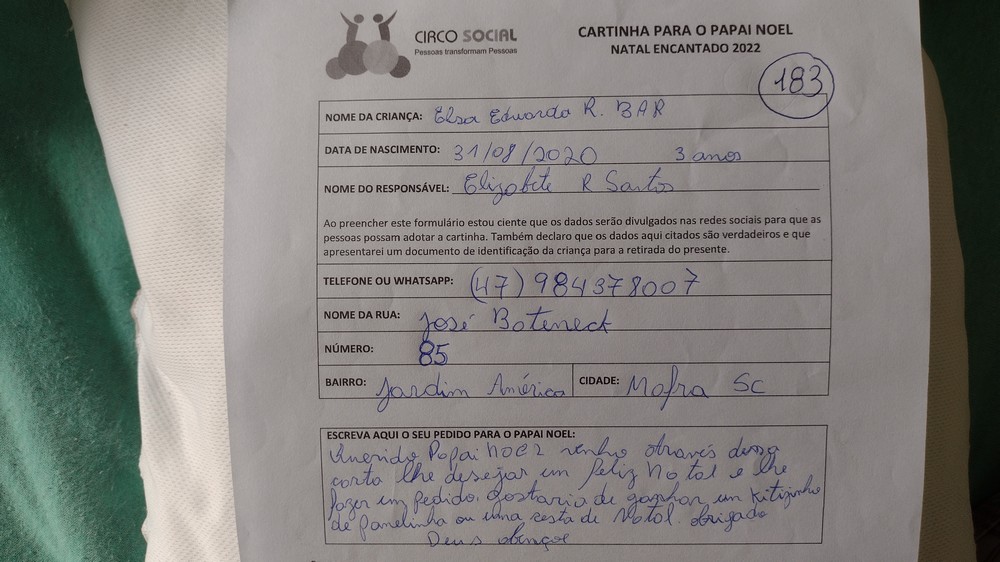 CIRCO SOCIAL
Pessoas transformam Pessoas
CARTINHA PARA O PAPAI NOEL
NATAL ENCANTADO 2022
183
NOME DA CRIANÇA: Elsa Eduarda R. BAR
DATA DE NASCIMENTO: 31/08/2020 3 anos
NOME DO RESPONSÁVEL: Elizabete R Santos
Ao preencher este formulário estou ciente que os dados serão divulgados nas redes sociais para que as
pessoas possam adotar a cartinha. Também declaro que os dados aqui citados são verdadeiros e que
apresentarei um documento de identificação da criança para a retirada do presente.
TELEFONE OU WHATSAPP: (47) 984378007
NOME DA RUA: José Boteneck
NÚMERO: 85
BAIRRO: Jardim América CIDADE: Mafra SC
ESCREVA AQUI O SEU PEDIDO PARA O PAPAI NOEL:
Querido Papai noel venho através dessa
carta lhe desejar um feliz Natal e lhe
fazer um pedido. gostaria de ganhar um Kitizinho
de panelinha ou uma cesta de Natal. obrigado
Deus abençoe